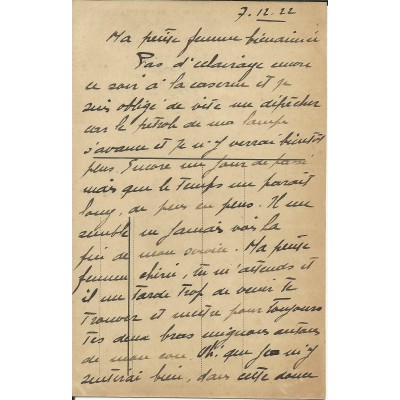 7.12.22
Ma petite femme bienaimée
Pas d'eclairage encore
ce soir à la caserne et je
suis obligé de vite me dépêcher
car le petrole de ma lampe
s'avance et je n'y verrai bientôt
plus. Encore un jour de passé
mais que le temps me parait
long, de plus en plus. Il me
semble ne jamais voir la
fin de mon service. Ma petite
femme chérie, tu m'attends et
il me tarde trop de venir te
trouver et mettre pour toujours
tes deux bras mignons autour
de mon cou. Oh! que je n'y
sentirai bien, dans cette douce